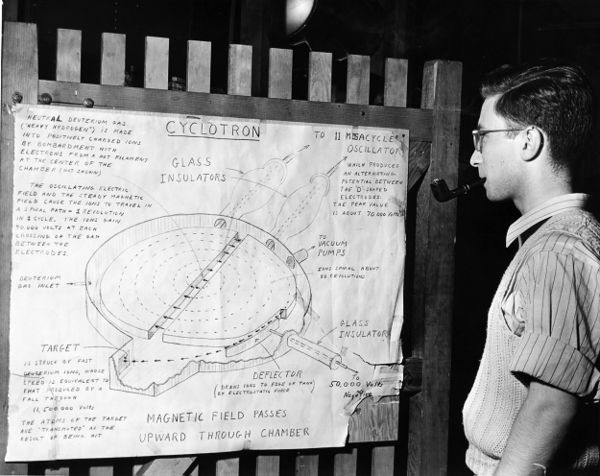 CYCLOTRON
NEUTRAL DEUTERIUM GAS
("HEAVY HYDROGEN") IS MADE
INTO POSITIVELY CHARGED IONS
BY BOMBARDMENT WITH
ELECTRONS FROM A HOT FILAMENT
AT THE CENTER OF THE
CHAMBER (NOT SHOWN)
THE OSCILLATING ELECTRIC
FIELD AND THE STEADY MAGNETIC
FIELD CAUSE THE IONS TO TRAVEL IN
A SPIRAL PATH - 1 REVOLUTION
IN 1 CYCLE. THE IONS GAIN
70,000 VOLTS AT EACH
CROSSING OF THE GAP
BETWEEN THE
ELECTRODES.
GLASS
INSULATORS
TO 11 MEGACYCLE
OSCILLATOR
WHICH PRODUCES
AN ALTERNATING
POTENTIAL BETWEEN
THE D-SHAPED
ELECTRODES:
THE PEAK VALUE
IS ABOUT 70,000 VOLTS
TO
VACUUM
PUMPS
IONS SPIRAL ABOUT
REVOLUTIONS
DEUTERIUM
GAS INLET
GLASS
INSULATOR
TARGET
IS STRUCK BY FAST
DEUTERIUM IONS, WHOSE
SPEED IS EQUIVALENT TO
THAT PRODUCED BY A
FALL THROUGH
11,500,000 VOLTS
THE ATOMS OF THE TARGET
ARE "TRANSMUTED" AS THE
RESULT OF BEING HIT
DEFLECTOR
(DRAWS IONS TO EDGE OF TANK
BY ELECTROSTATIC FORCE)
TO
50,000 Volts
Negative
MAGNETIC FIELD PASSES
UPWARD THROUGH CHAMBER